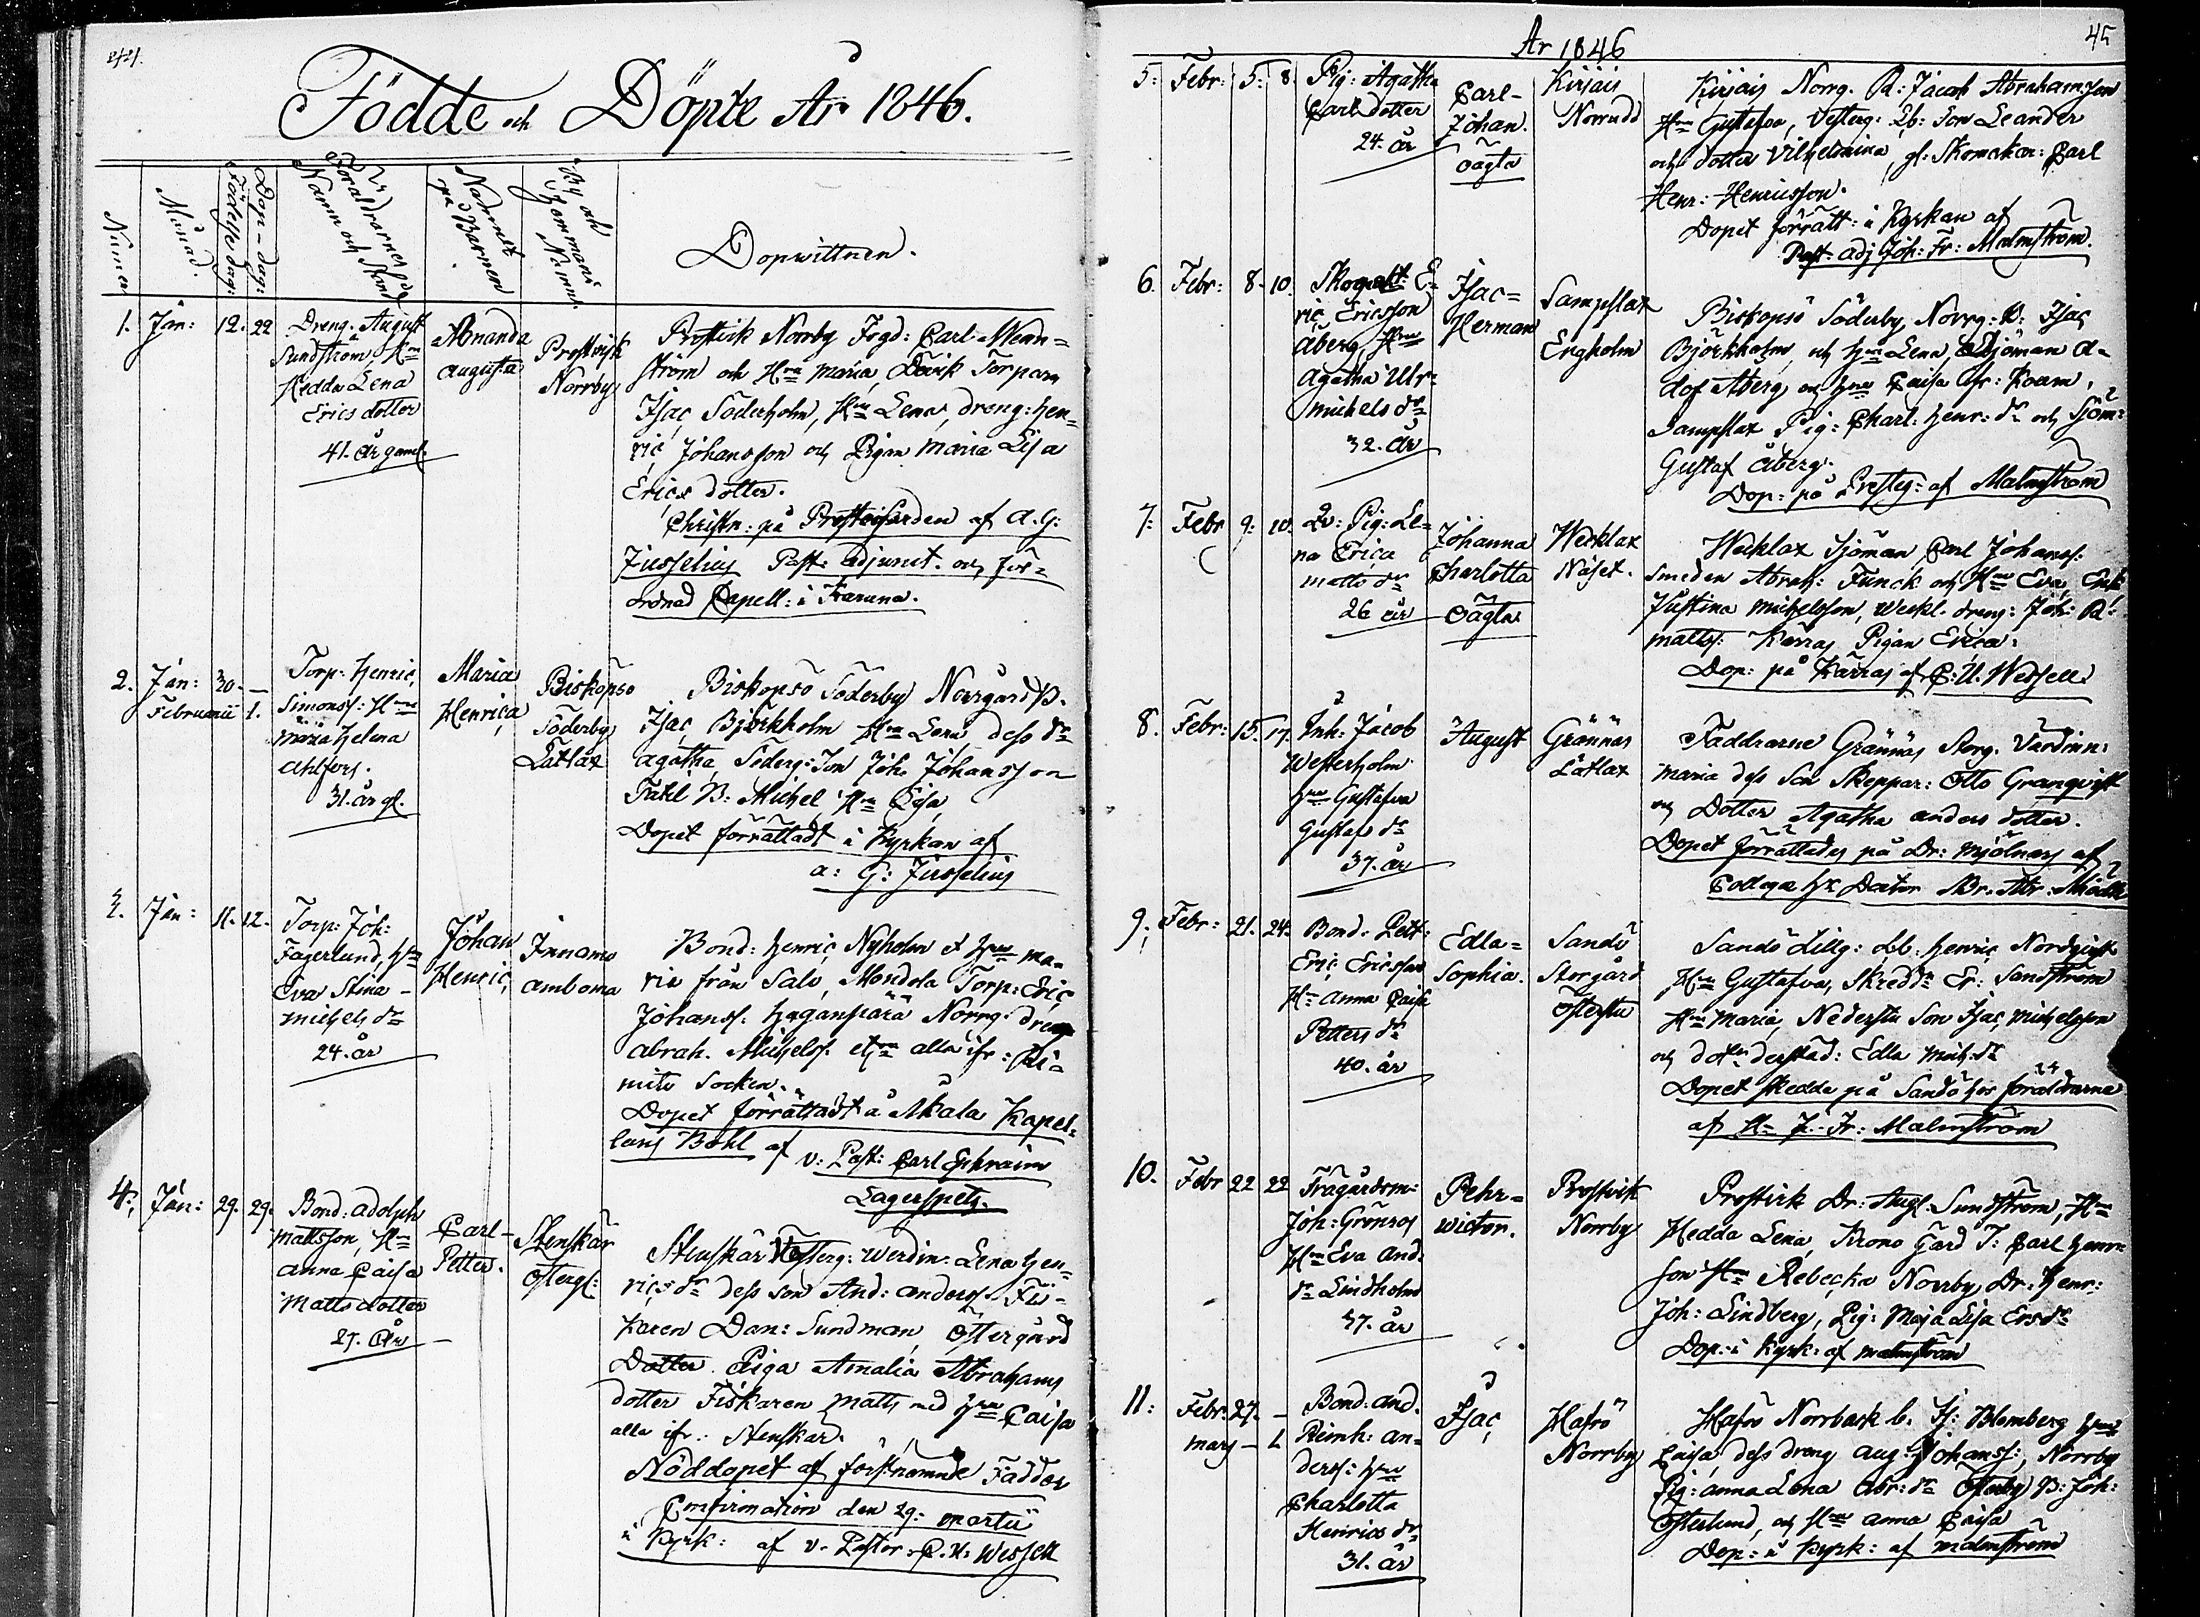 Födde och Döpte År 1846.
Numer
Månad.
Födelse dag:
Dop-dag:
Föräldrarnes
Namn och Stånd
Namnet
på Barnen
By och
Hemmans
Namn
Dopwittnen.
1. Jan: 12. 22
Dreng. August
Sundström, Hru
Hedda Lena
Ericsdotter
41. år gaml.
Amanda
Augusta
Prostvik
Norrby
Prostvik Norrby Fogd: Carl Wenn=
ström och Hru Maria, Torpare
Isac Söderholm, Hru Lena, dreng: Hen=
ric Johansson och Pigan Maria Lisa
Erics dotter.
Christn: på Prostgården af A. G:
Jusselius Past: adjunct. och för=
ordnad Capell: i
2. Jan: 30. –
Februarii 1.
Torp: Henric
Simonss: Hru
Maria Helena
Ahlfors.
31. år gl.
Maria
Henrica
Biskopsö
Söderby
Låtlax
Biskopsö Söderby Norrgård B.
Isac Björkholm Hru Lena dess dr
Agatha, Söderg: Son Joh. Johansson
B: Michel Hru Lisa,
Dopet förrättadt i Kyrkan af
A: G: Jusselius
3. Jan: 11. 12.
Torp: Joh:
Fagerlund, Hru
Eva Stina
Michels dr
24. år
Johan
Henric
Innamo
Amboma
Bond: Henric Nyholm o Hru Ma=
ria från Salo, Mondola Torp: Eric
Johanss. Norrg. dreng
Abrah. Michelss. alla ifr: Ri=
mito Socken.
Dopet förrättadt å Kapel=
lans Bohl af v: Past: Carl Ephraim
Lagerspetz.
4. Jan: 29. 29.
Bond: Adolph
Mattsson, Hru
Anna Caisa
Mattsdotter
27. år
Carl-
Petter.
Stenskär
Österg:
Stenskär Vesterg: Werdin: Lena Hen=
rics dr dess son And: Anderss. Fis=
karen Dan: Sundman, Östergård
Dotter Piga Amalia Abrahams
dotter Fiskaren Matts med Hru Caisa
alla ifr: Stenskär.
Nöddopet af förstnämnde Fadder
Confirmation den 29: Martii
i Kyrk: af v. Pastor C. U. Wessell
År 1846
45
5: Febr: 5. 8.
Pig: Agatha
Carlsdotter
24. år
Carl-
Johan.
oägta
Kirjais
Norrudd
Kirjais Norrg. B: Jacob Abrahamsson
Hru Gustafva, Vesterg: Lb: Son Leander
och dotter Vilhelmina, gl: Skomakar: Carl
Henr: Henricsson.
Dopet förrätt: i Kyrkan af
Past. adj Joh: Fr: Malmström.
6. Febr: 8. 10.
E=
ric Ericsson
Åberg, Hru
Agatha Ulr:
Michels dr
32. år
Isac=
Herman
Sampslax
Engholm
Biskopsö Söderby Norrg: B: Isac
Björkholm, och Hru Lena, Sjöman A=
dof Åberg och Hru Caisa fr:
Sampslax Pig: Charl: Henr: dr och Sjöm:
Gustaf Åberg.
Dop: på Presteg: af Malmström
7: Febr 9. 10.
Pig: Le=
na Erica
Matts dr
26 år
Johanna
Charlotta
oägta
Wecklax
Näset.
Wecklax Sjöman Carl Johanss:
Smeden Abrah: Funck och Hru Eva, Enk.
Justina Michelsson, Weckl. dreng: Joh: Ad:
Matts: Kärras Pigan Erica.
Dop: på Kärras af C: U. Wessell
8. Febr: 15. 17.
Inh: Jacob
Westerholm
Hru Gustafva
Gustafs dr
37. år
August
Grännäs
Låtlax
Faddrarne Grännäs Storg. Värdinn:
Maria dess Son Skeppar: Otto Granqvist
och Dotter Agatha Anders dotter.
Dopet förrättades på Dr: Mjölnars af
9. Febr: 21. 24.
Bond: Pett:
Eric Ericsson
Hu Anna Caisa
Petters dr
40. år
Edla=
Sophia.
Sandö
Storgård
Österstu
Sandö Lillg: Lb: Henric Nordqvist
Hru Gustafva, Skredd: Er: Sandström
Hru Maria, Nederstu Son Isac Michelsson
och dottr derstäd: Edla Mich: dr
Dopet skedde på Sandö hos föräldrarna
af J. Fr: Malmström
10. Febr 22 22
Trägårdsm:
Joh: Grönros
Hru Eva And:
dr Lindholm
37. år
Pehr=
Wictor.
Prostvik
Norrby
Prostvik Dr: Aug: Sundström, Hru
Hedda Lena, Krono Gård T: Carl Henr
son Hru Rebecka Norrby Dr: Henr:
Joh: Lindberg, Pig: Maja Lisa Ers dr
Dop: i Kyrk: af Malmström
11: Febr: 27. –
Mars – 1.
Bond: And.
Reinh: An=
derss: Hru
Charlotta
Henrics dr
31. år
Isac
Hafrö
Norrby
Hafrö Norrback b. Is: Blomberg Hru
Caisa, dess dreng Aug: Johanss:, Norrby
Pig: Anna Lena Abr: dr Österby B: Joh:
Österlund, och Hru Anna Caisa
Dop: i Kyrk: af Malmström